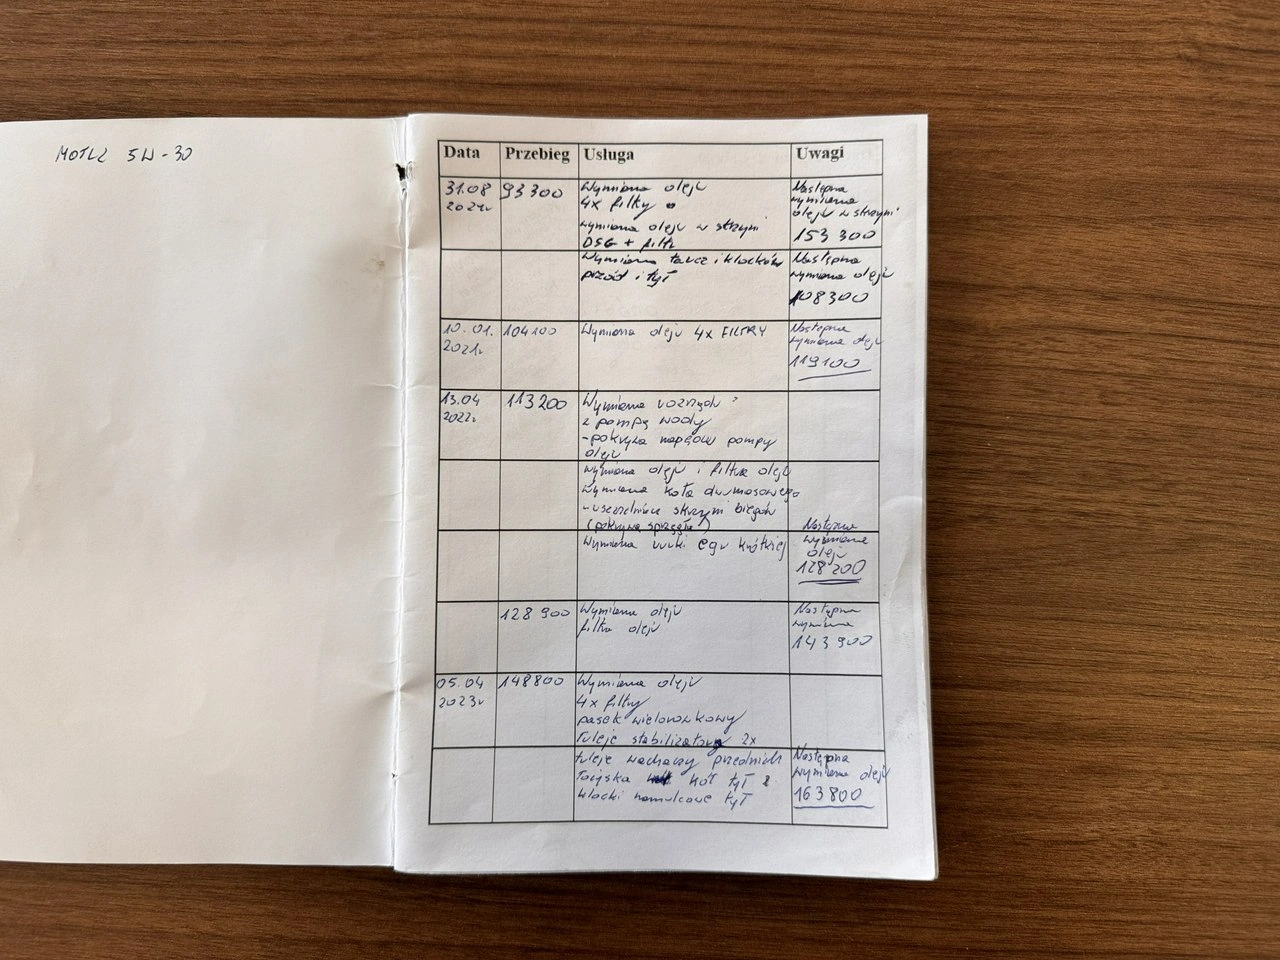 MOTUL 5W-30
Data Przebieg Usługa Uwagi
31.08 2021r 93 300 Wymiana oleju
4x filtry
wymiana oleju w skrzyni
DSG + filtr
Następna
wymiana
oleju w skrzyni
153 300
Wymiana tarcz i klocków
przód i tył
Następna
wymiana oleju
108300
10.01. 2021r 104100 Wymiana oleju 4x FILTRY
Następna
wymiana oleju
119100
13.04 2022r 113200 Wymiana rozrządu
z pompą wody
- pokrywa napędów pompy
oleju
wymiana oleju i filtra oleju
Wymiana koła dwumasowego
- uszczelniacz skrzyni biegów
(pokrywa sprzęgła)
Wymiana rurki egr krótkiej
Następna
wymiana
oleju
128 200
128 900 Wymiana oleju
filtra oleju
Następna
wymiana
143 900
05.04 2023r 148800 Wymiana oleju
4x filtry
pasek wielorowkowy
Tuleje stabilizatora 2x
tuleje wachaczy przednich
Łożyska kół tył 2
klocki hamulcowe tył
Następna
wymiana oleju
163 800